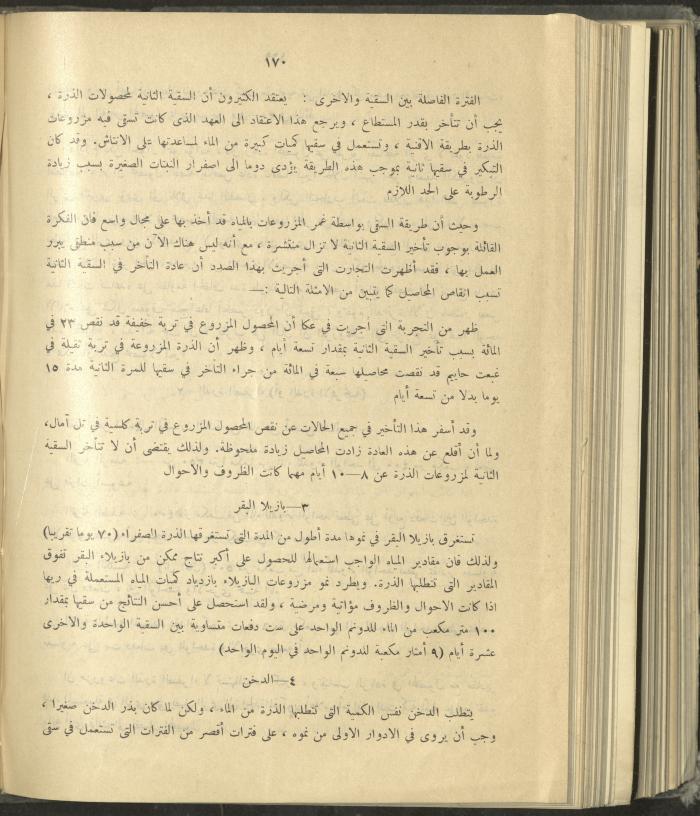 ١٧٠
الفترة الفاصلة بين السقية والاخرى : يعتقد الكثيرون أن السقية الثانية لمحصولات الذرة ،
يجب أن تتأخر بقدر المستطاع ، ويرجع هذا الاعتقاد الى العهد الذى كانت تسقى فيه مزروعات
الذرة بطريقة الاقنية ، وتستعمل في سقيها كميات كبيرة من الماء لمساعدتها على الانتاش. وقد كان
التبكير في سقيها ثانية بموجب هذه الطريقة يؤدى دوما الى اصفرار النبتات الصغيرة بسبب زيادة
الرطوبة على الحد اللازم
وحيث أن طريقة السقى بواسطة غمر المزروعات بالمياه قد أخذ بها على مجال واسع فان الفكرة
القائلة بوجوب تأخير السقية الثانية لا تزال منتشرة ، مع أنه ليس هناك الآن من سبب منطقى يبرر
العمل بها ، فقد أظهرت التجارت التى أجريت بهذا الصدد أن عادة التأخر في السقية الثانية
تسبب انقاص المحاصيل كما يتبين من الامثلة التالية :—
ظهر من التجربة التى اجريت في عكا أن المحصول المزروع في تربة خفيفة قد نقص ٢٣ في
المائة بسبب تأخير السقية الثانية بمقدار تسعة أيام ، وظهر أن الذرة المزروعة في تربة ثقيلة في
غبعت حاييم قد نقصت محاصيلها سبعة في المائة من جراء التأخر في سقيها للمرة الثانية مدة ١٥
يوما بدلا من تسعة أيام
وقد أسفر هذا التأخير في جميع الحالات عن نقص المحصول المزروع في تربة كلسية في تل آمال،
ولما أن أقلع عن هذه العادة زادت المحاصيل زيادة ملحوظة. ولذلك يقتضى أن لا تتأخر السقية
الثانية لمزروعات الذرة عن ٨—١٠ أيام مهما كانت الظروف والاحوال
٣—بازيلا البقر
تستغرق بازيلا البقر في نموها مدة أطول من المدة التى تستغرقها الذرة الصفراء (٧٠ يوما تقريبا)
ولذلك فان مقادير المياه الواجب استعمالها للحصول على أكبر نتاج ممكن من بازيلاء البقر تفوق
المقادير التى تتطلبها الذرة. ويطرد نمو مزروعات البازيلاء بازدياد كميات المياه المستعملة في ريها
اذا كانت الاحوال والظروف مؤاتية ومرضية ، ولقد استحصل على أحسن النتائج من سقيها بمقدار
١٠٠ متر مكعب من الماء للدونم الواحد على ست دفعات متساوية بين السقية الواحدة والاخرى
عشرة أيام (٩ أمتار مكعبة للدونم الواحد في اليوم الواحد)
٤—الدخن
يتطلب الدخن نفس الكمية التى تتطلبها الذرة من الماء ، ولكن لما كان بذر الدخن صغيرا ،
وجب أن يروى في الادوار الاولى من نموه ، على فترات أقصر من الفترات التى تستعمل في سقى